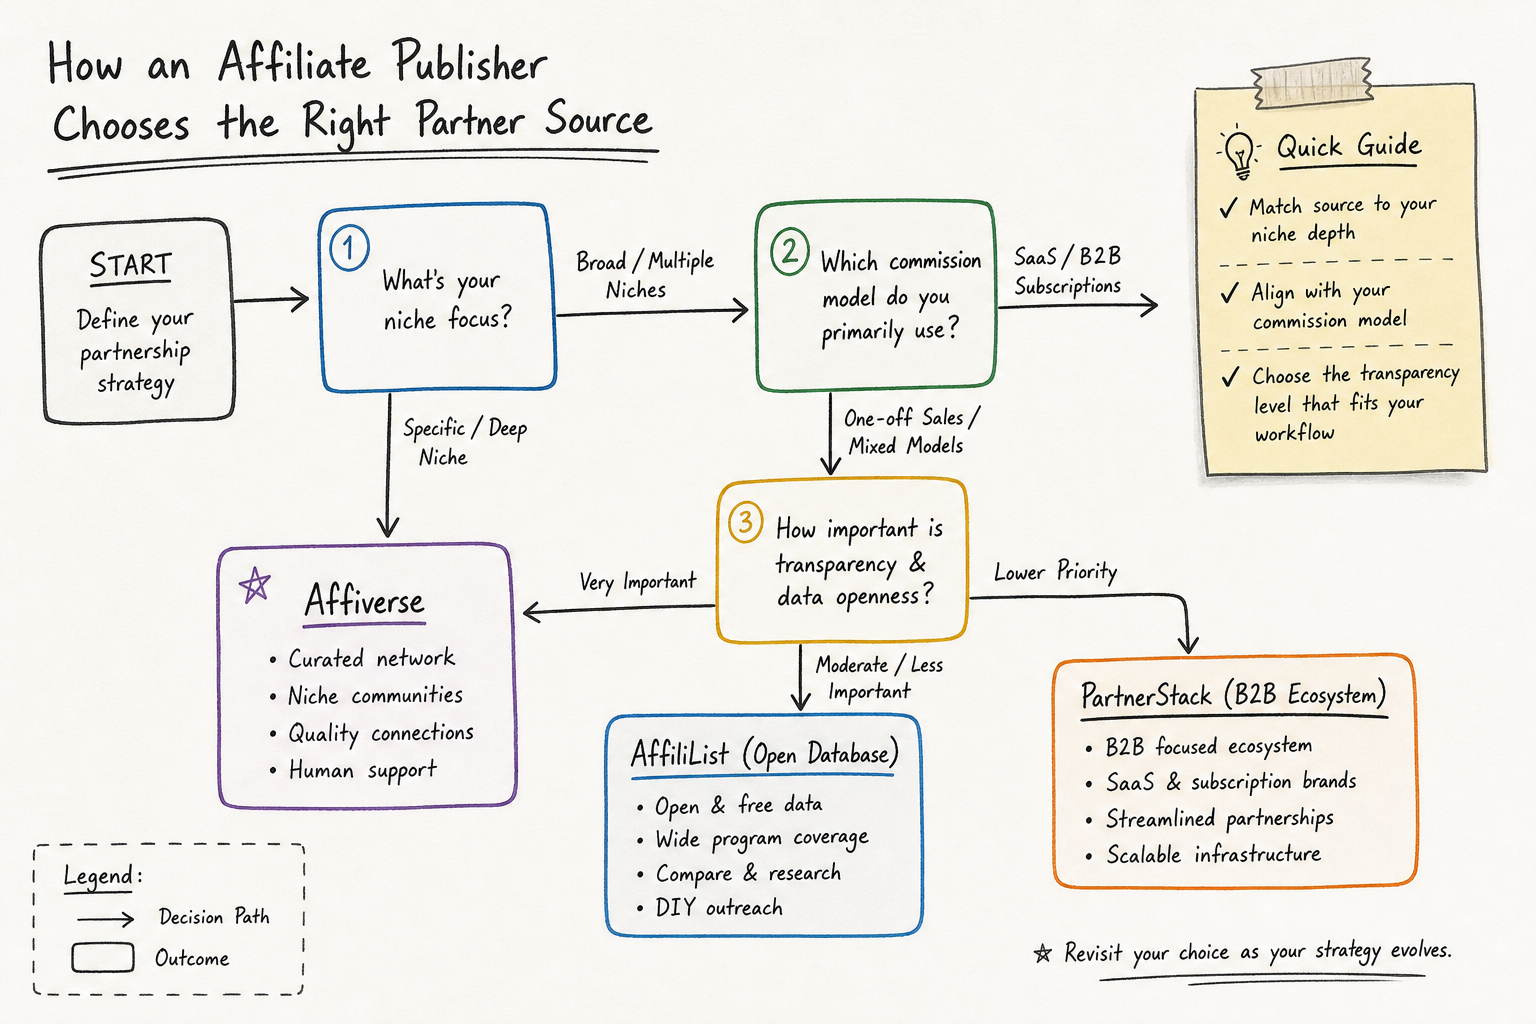 How an Affiliate Publisher
Chooses the Right Partner Source
START
Define your
partnership
strategy
1
What's your
niche focus?
Broad / Multiple
Niches
2
Which commission
model do you
primarily use?
SaaS / B2B
Subscriptions
Quick Guide
✓ Match source to your
niche depth
✓ Align with your
commission model
✓ Choose the transparency
level that fits your
workflow
Specific / Deep
Niche
One-off Sales /
Mixed Models
3
How important is
transparency &
data openness?
Very Important
Lower Priority
Moderate / Less
Important
Affiverse
• Curated network
• Niche communities
• Quality connections
• Human support
AffiliList (Open Database)
• Open & free data
• Wide program coverage
• Compare & research
• DIY outreach
PartnerStack (B2B Ecosystem)
• B2B focused ecosystem
• SaaS & subscription brands
• Streamlined partnerships
• Scalable infrastructure
Legend:
Decision Path
Outcome
☆ Revisit your choice as your strategy evolves.